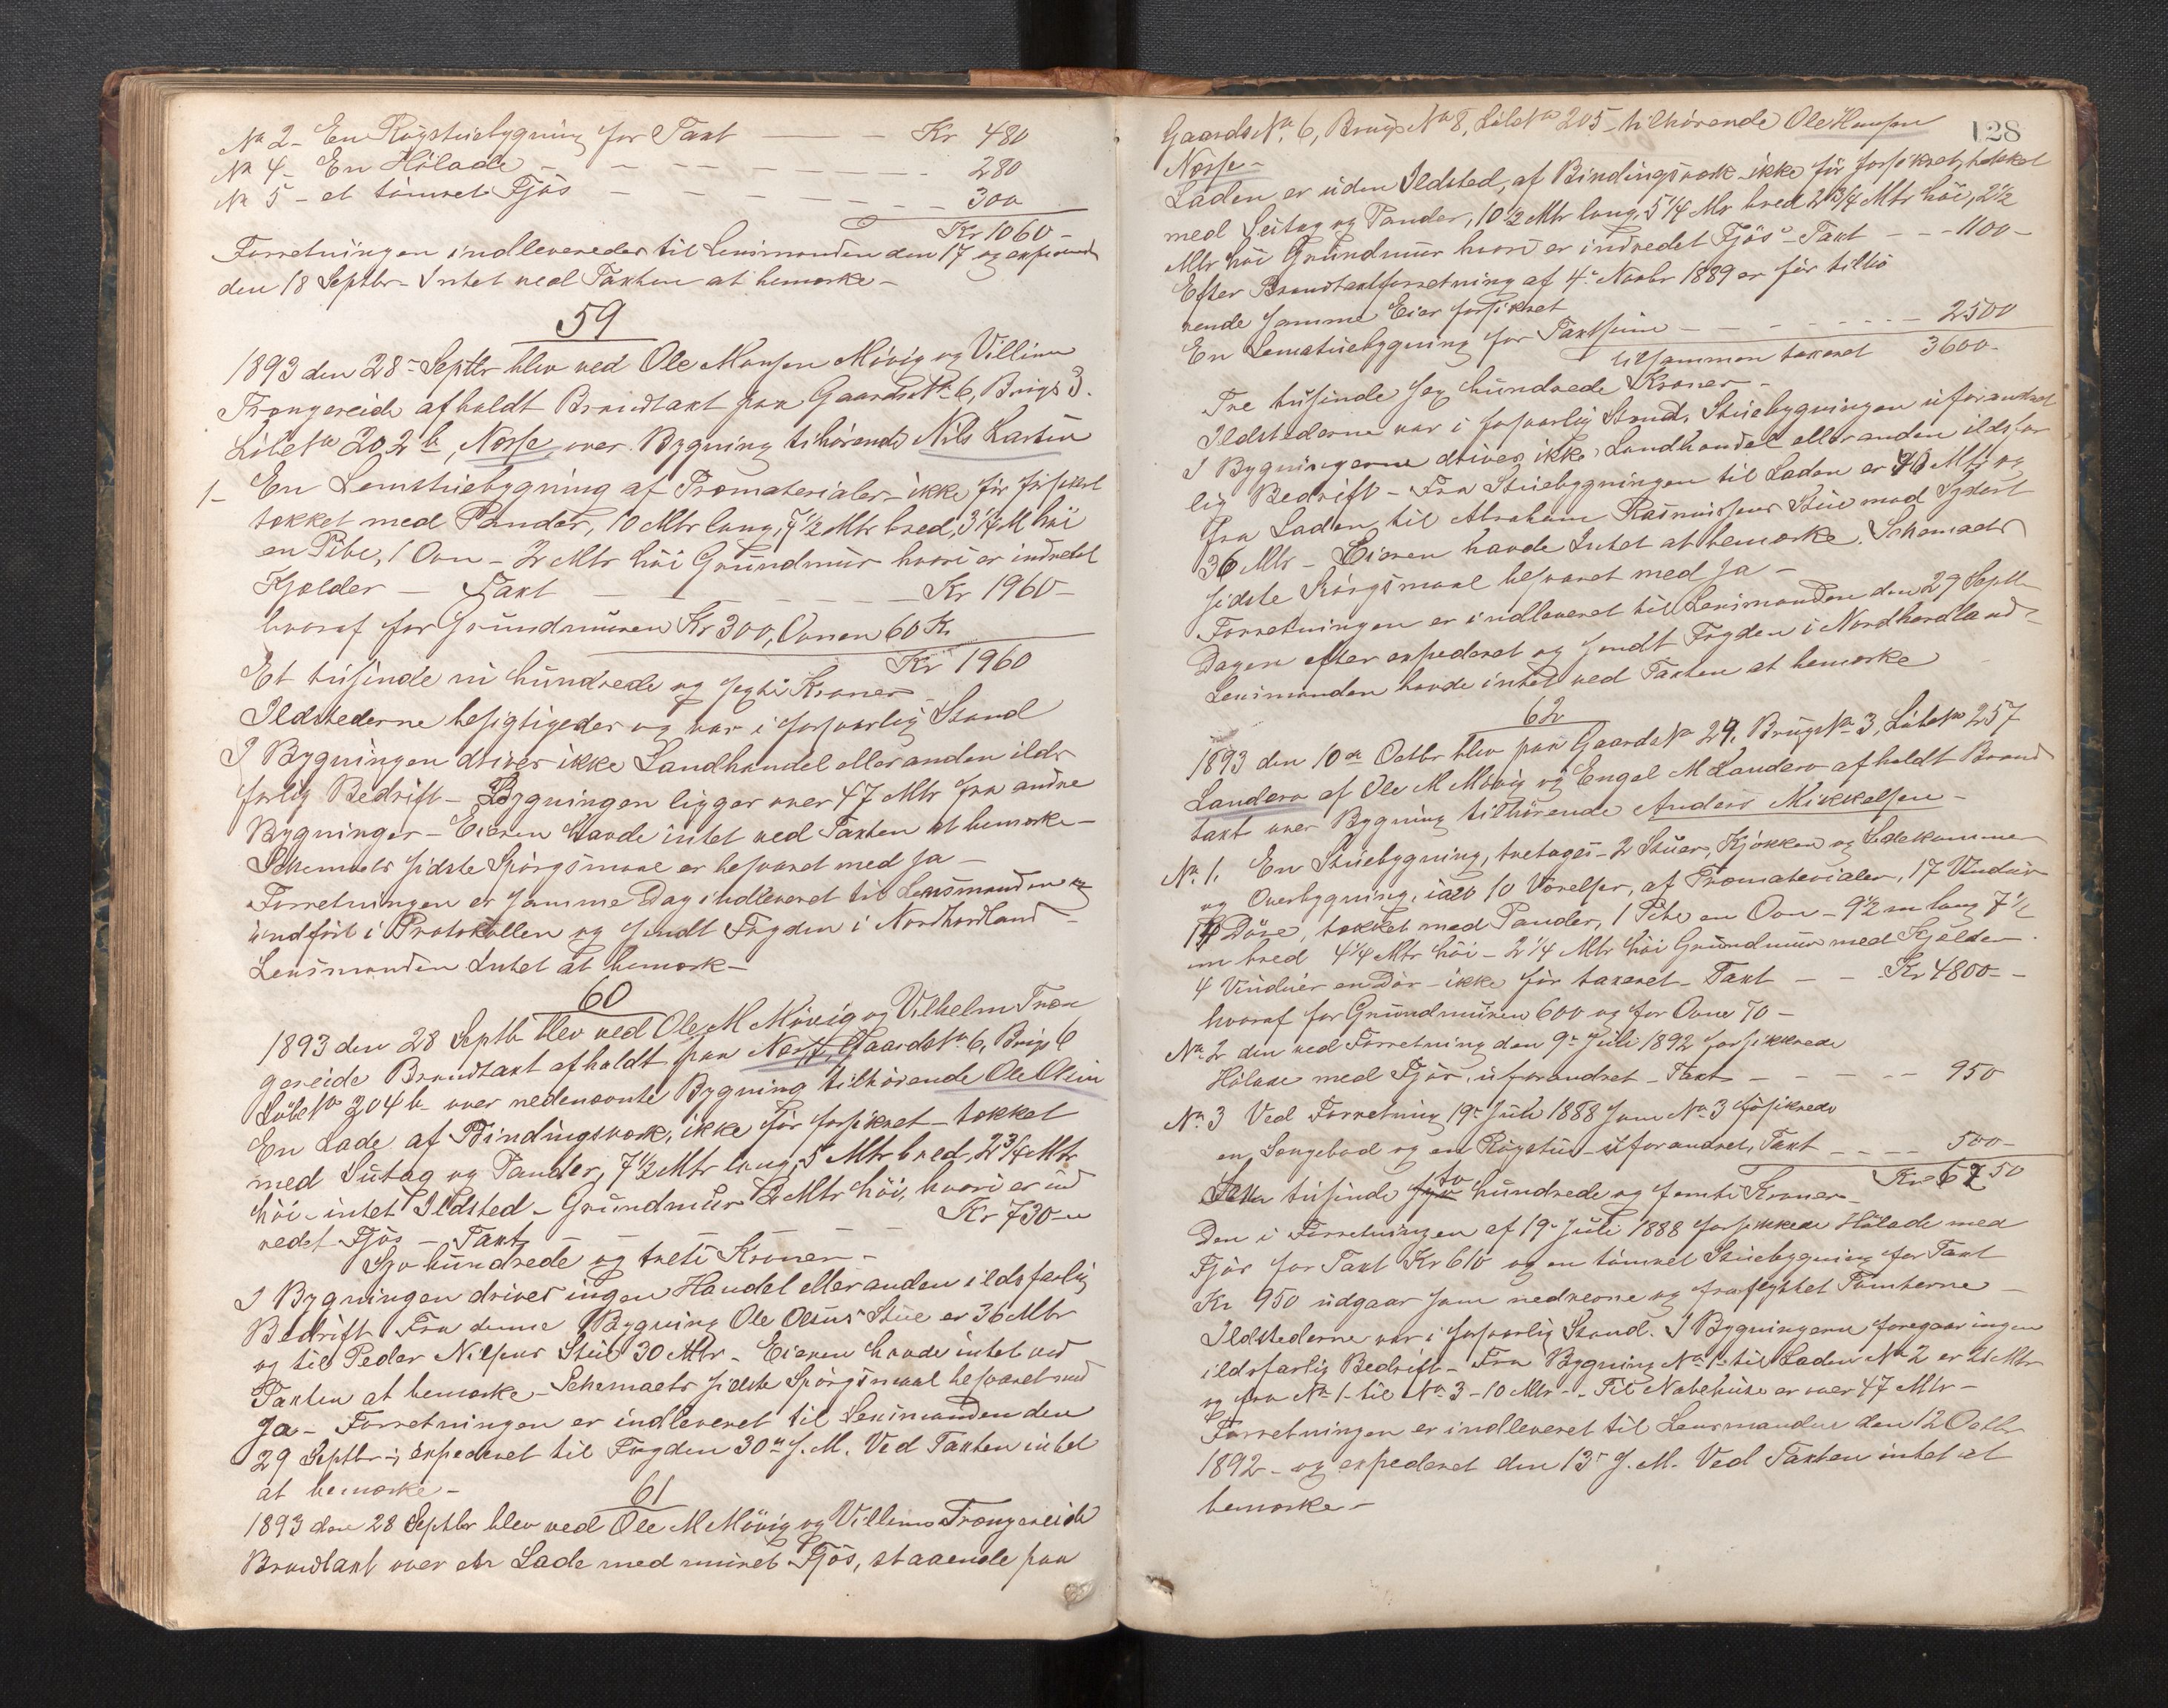 No 2 - En Røgstuebygning for Taxt — — Kr 480
No 4 - En Hölade — — — — 280
No 5 - et tömret Fjös — — — — 300
Kr 1060 -
Forretningen indleveredes til Lensmanden den 17 og expederet
den 18 Septbr - Intet ved Taxten at bemærke -
59
1893 den 28de Septbr blev ved Ole Monsen Mövig og Villum
Trængereide afholdt Brandtaxt paa Gaards No 6, Brugs 3.
Löbe No 202 b, Norse over Bygning tihörende Nils Larsen
1 - En Lemstuebygning af Træmaterialer - ikke för forsikret
tækket med Pander, 10 Mtr lang, 7 1/2 Mtr bred, 3 1/4 M höi
en Pibe, 1 Ovn - 2 Mtr höi Grundmur hvori er indredet
Kjælder — Taxt — — — Kr 1960 -
hvoraf for Grundmuren Kr 300, Ovnen 60 Kr
Kr 1960
Et tusinde ni hundrede og segsti Kroner -
Ildstederne besigtigedes og var i forsvarlig Stand
I Bygningen drives ikke Landhandel eller anden ilds
farlig Bedrift - Bygningen ligger over 47 Mtr fra andre
Bygninger - Eieren havde intet ved Taxten at bemærke -
Schemaets sidste Spörgsmaal er besvaret med Ja -
Forretningen er samme Dag indleveret til Lensmanden og
indfört i Protokollen og sendt Fogden i Nordhordland -
Lensmanden Intet at bemærk -
60
1893 den 28 Septb blev ved Ole M Mövig og Vilhelm Træn
gereide Brandtaxt afholdt paa Norse, Gaards No 6, Brugs 6
Löbe No 204 b - over nedennævnte Bygning tilhörende Ole Olsen
En Lade af Bindingsværk, ikke för forsikret - tækket
med Sutag og Pander, 7 1/2 Mtr lang, 5 Mtr bred, 2 3/4 Mtr
höi - intet Ildsted - Grundmur 2 Mtr höi, hvori er ind
redet Fjös — Taxt — — — Kr 730 -
Syv hundrede og treti Kroner -
I Bygningen drives ingen Handel eller anden ildsfarlig
Bedrift. Fra denne Bygning Ole Olsens Stue er 36 Mtr
og til Peder Nilsens Stue 30 Mtr - Eieren havde intet ved
Taxten at bemærke - Schemaets sidste Spörgsmaal besvaret med
Ja - Forretningen er indleveret til Lensmanden den
29 Septbr -; expederet til Fogden 30te s. M. Ved Taxten intet
at bemærke -
61
1893 den 28 Septbr blev ved Ole M Mövig og Villum Trængereide
Brandtaxt over en Lade med muret Fjös, staaende paa
128
Gaards No 6, Brugs No 8, Löbe No 205 - tilhörende Ole Hansen
Norse -
Laden er uden Ildsted, af Bindingsværk - ikke för forsikret, tækket
med Sutag og Pander, 10 1/2 Mtr lang, 5 1/4 Mr bred 2 3/4 Mtr höi, 2 1/2
Mtr höi Grundmur hvori er indredet Fjös - Taxt - - - 1100 -
Efter Brandtaxtforretning af 4de Novbr 1889 er för tilhö
rende samme Eier forsikret
En Lemstuebygning for Taxtsum — — — 2500
tilsammen taxeret 3600 -
Tre tusinde seg hundrede Kroner -
Ildstederne var i forsvarlig Stand, Stuebygningen uforandret
I Bygningerne drives ikke Landhandel eller anden ildsfar
lig Bedrift - Fra Stuebygningen til Laden er 40 Mtr og
fra Laden til Abraham Rasmussens Stue mod Sydöst
36 Mtr - Eieren havde Intet at bemærke. Schemaets
sidste Spörgsmaal besvaret med Ja -
Forretningen er indleveret til Lensmanden den 29 Septbr
Dagen efter expederet og sendt Fogden i Nordhordland -
Lensmanden havde intet ved Taxten at bemærke
62
1893 den 10de Octbr blev paa Gaards No 29, Brugs No 3, Löbe No 257
Landero af Ole M Mövig og Engel M Landero afholdt Brand
taxt over Bygning tilhörende Anders Mikkelsen -
No 1. En Stuebygning, toetages - 2 Stuer, Kjökken og Sidekammer
og Overbygning, ialt 10 Værelser, af Træmaterialer, 17 Vinduer
Döre, tækket med Pander, 1 Pibe en Ovn - 9 1/2 m lang 7 1/2
m bred 4 1/4 Mtr höi - 2 1/4 Mtr höi Grundmur med Kjelder
4 Vinduer en Dör - ikke för taxeret - Taxt — — Kr 4800 -
hvoraf for Grundmuren 600 og for Ovne 70 -
No 2 den ved Forretning den 9de Juli 1892 forsikkrede
Hölade med Fjös, uforandret - Taxt — — — 950
No 3 Ved Forretning 19de Juli 1888 som No 3 forsikrede
en Sengebod og en Rögstue uforandret, Taxt — — 500 -
Kr 6250
Sex tusinde to hundrede og femti Kroner -
Den i Forretningen af 19de Juli 1888 forsikkrede Hölade med
Fjös for Taxt Kr 610 og en tömret Stuebygning for Taxt
Kr 950 udgaar som nedrevne og fraflyttet Tomterne -
Ildstederne var i forsvarlig Stand. I Bygningerne foregaar ingen
ildsfarlig Bedrift - Fra Bygning No 1 til Laden No 2 er 21 Mtr
og fra No 1 til No 3 - 10 Mtr - Til Nabehuse er over 47 Mtr -
Forretningen er indleveret til Lensmanden den 12 Octbr
1892 - og expederet den 13de s. M. Ved Taxten intet at
bemærke -